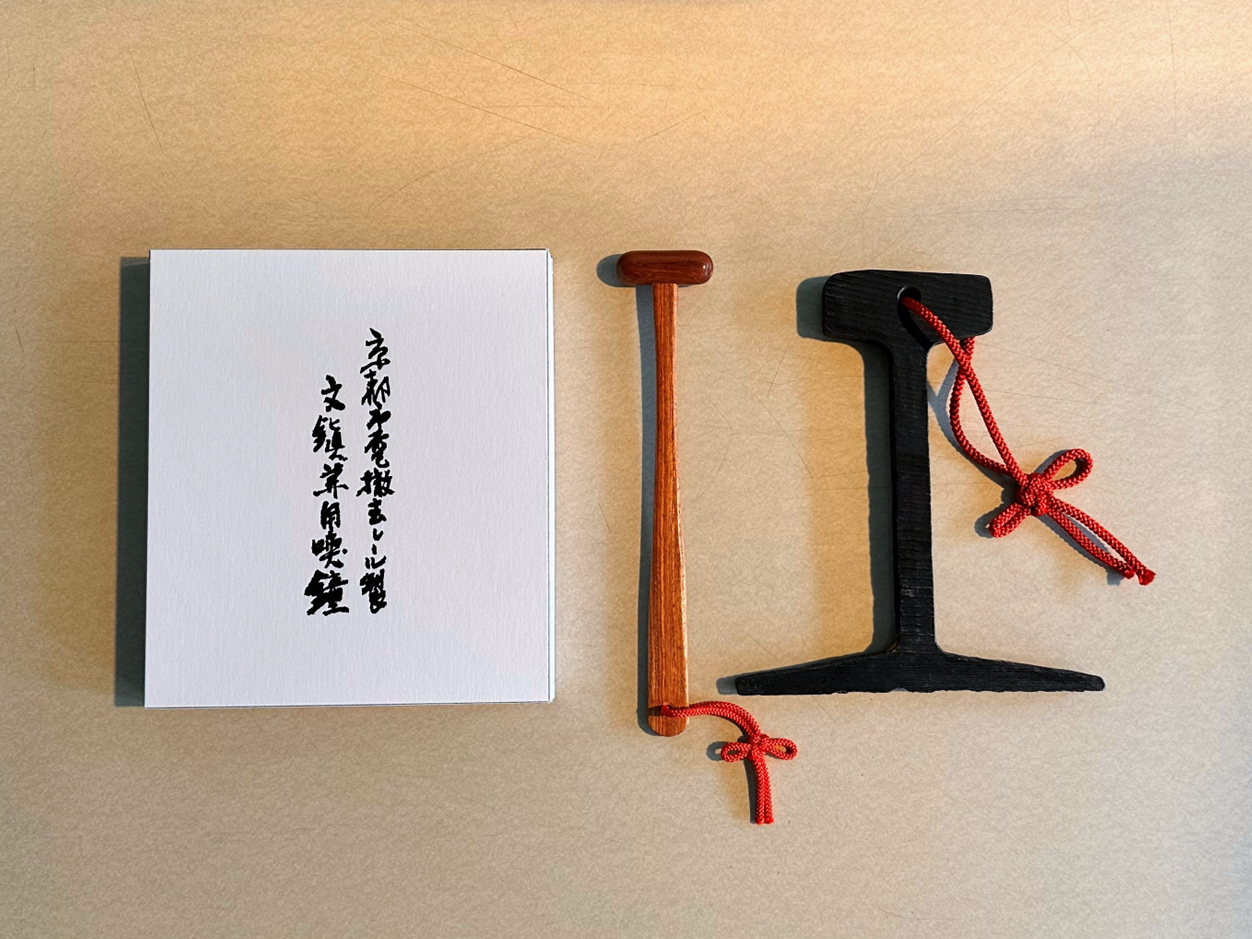 京都市電撤去レール製
文鎮兼用喚鐘